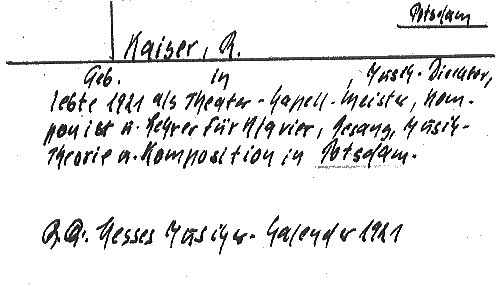 Potsdam
Kaiser, R.
Geb. in , Musik-Director,
lebte 1921 als Theater-Capell-Meister, Kom-
ponist u. Lehrer für Klavier, Gesang, Musik-
Theorie u. Komposition in Potsdam.
Hesses Musiker-Calender 1921